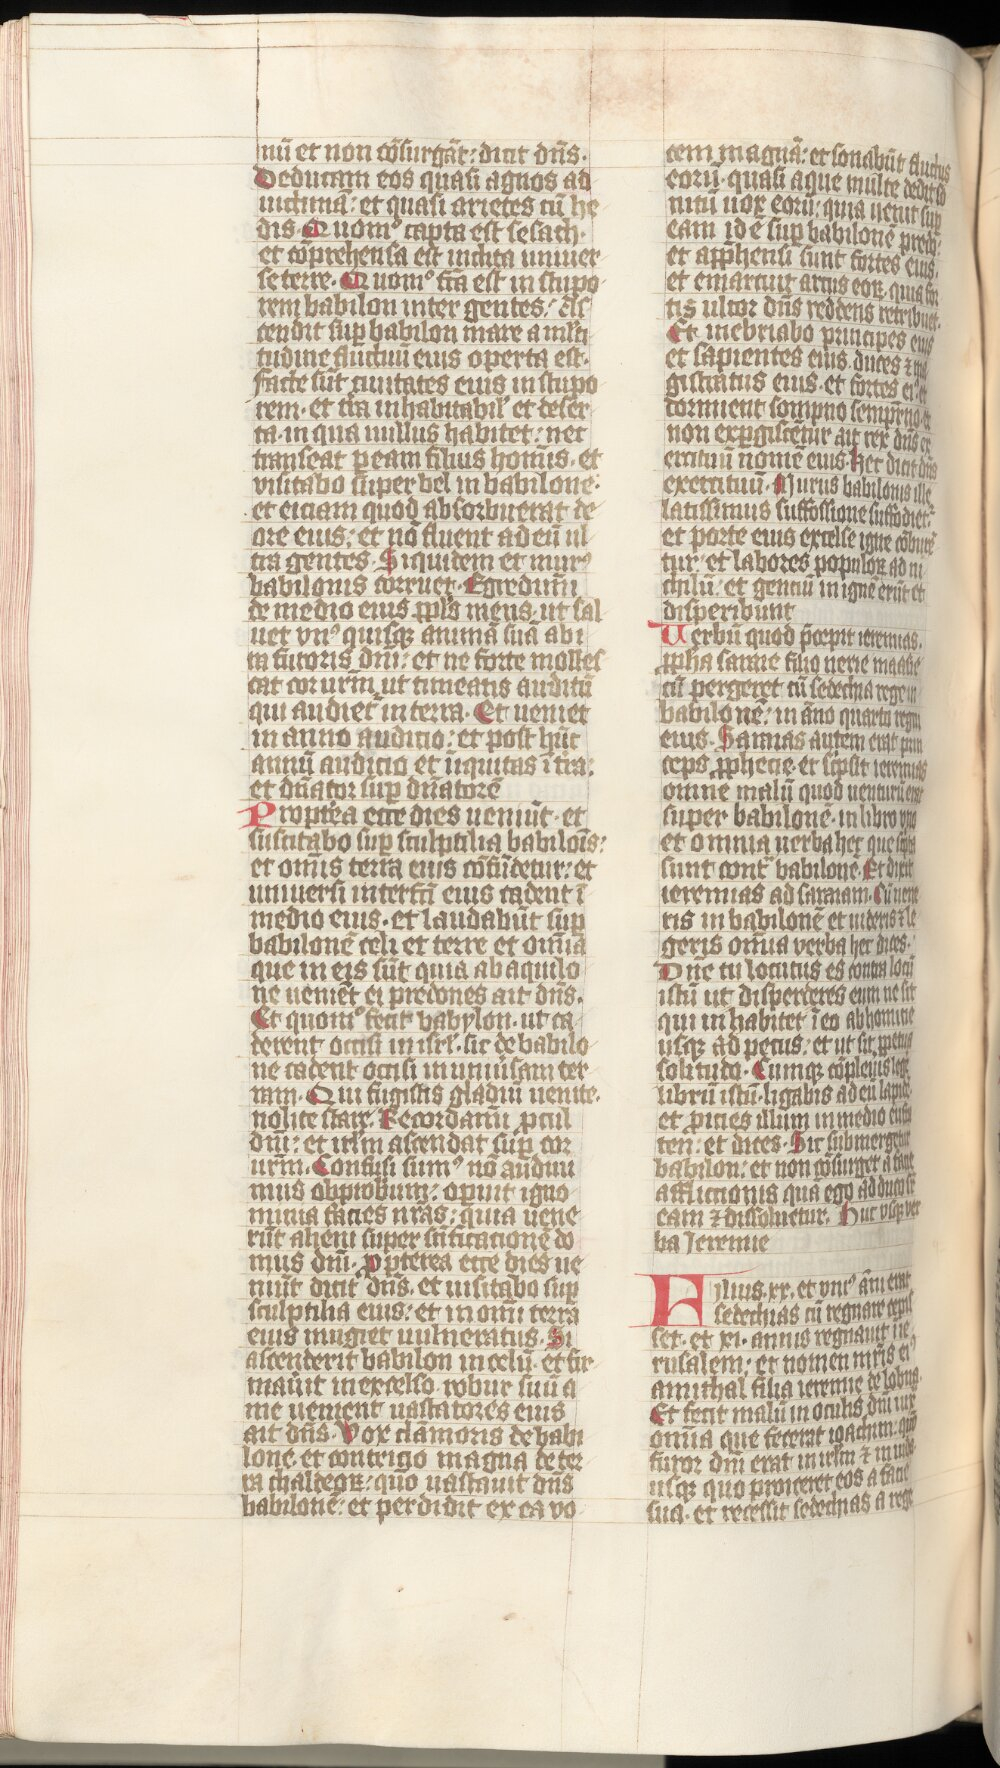 nū et non cōsurgāt: dicit dn̄s.
Deducam eos quasi agnos ad
uictimā: et quasi arietes cū he
dis. Quomo᷒ capta est sesach.
et cōprehensa est inclita uniuer
se terre. Quomo᷒ fc̄a est in stupo
rem babilon inter gentes. As
cendit sup̲ babilon mare a mlti
tudine fluctuū eius operta est.
facte sūt ciuitates eius in stupo
rem. et t̄ra inhabitabil' et deser
ta. in qua nullus habitet: nec
transeat p̲ eam filius homīs. et
visitabo super bel in babilone.
et eiciam quod absorbuerat de
ore eius: et nō fluent ad eū ul
tra gentes. Siquidem et mur᷒
babilonis corruet. Egredimī
de medio eius ppl̄s meus. ut sal
uet vn᷒ quisq; animā suā ab i
ra furoris dn̄i: et ne forte molles
cat cor ur̄m ut timeatis auditū
qui audiet᷑ in terra. Et ueniet
in anno auditio: et post hūc
annū auditio et iniquitas ī t̄ra:
et dn̄ator sup̲ dn̄atorē
Propt̄ea ecce dies ueniūt. et
suscitabo sup̲ sculptilia babilōis:
et omīs terra eius cōfūdetur: et
uniuersi interfc̄i eius cadent ī
medio eius. et laudabūt sup̲
babilonē celi et terre et omīa
que in eis sūt quia ab aquilo
ne ueniēt ei predones ait dn̄s.
Et quomo᷒ fecit babylon. ut ca
derent occisi in isrl. sic de babilo
ne cadent occisi in uniūsam ter
ram. Qui fugistis gladiū uenite.
nolite stare. Recordamī procul
dn̄i: et irlm ascendat sup̲ cor
ur̄m. Confusi sum᷒ nō audiui
mus obprobrium: opuit igno
minia facies nr̄as: quia uene
rūt alieni super sc̄ificationē do
mus dn̄i. propterea ecce dies ue
niūt dicit dn̄s. et uisitabo sup̲
sculptilia eius: et in omī terra
eius mugiet uulneratus. Si
ascenderit babilon in celū. et fir
mauit in excelso robur suū a
me uenient uastatores eius
ait dn̄s. Vox clamoris de babi
lone. et contricio magna de ter
ra chaldeoꝝ: quo uastauit dn̄s
babilonē: et perdidit ex ea vo
cem magnā: et sonabūt fluctus
eorū. quasi aque multe dedit so
nitū uox eorū: quia uenit sup̲
eam id ē sup̲ babilonē predo:
et app̄hensi sunt fortes eius.
et emarcuit arcus eoꝝ. quia for
tis ultor dn̄s reddens retribuet.
Et inebriabo principes eius
et sapientes eius. duces ⁊ ma
gistratus eius. et fortes ei᷒. et
dormient sompno semp̲rno. et
non exp̲giscētur ait rex dn̄s ex
ercituū nomē eius. Hec dicit dn̄s
exercituū. Murus babilonis ille
latissimus suffossione suffodiet᷑.
et porte eius excelse igne cōburē
tur. et labores populoꝝ ad ni
chilū: et gentiū in ignē erūt et
disperibunt
Uerbū quod p̄cepit ieremias.
ppha saraie filio nerie maasie
cū pergeret cū sedechia rege in
babilonē: in āno quarto regni
eius. Saraias autem erat prin
ceps prophecie. et sc̄psit ieremias
omne malū quod uenturū erat
super babilonē. in libro vno
et omnia uerba hec que scripta
sunt cont᷑ babilonē. Et dixit
ieremias ad saraiam. Cū uene
ris in babilonē et uideris ⁊ le
geris omīa verba hec dices.
Dn̄e tu locutus es contra locū
istū ut disperderes eum ne sit
qui inhabitet ī eo ab homine
usq; ad pecus: et ut sit p̲petua
solitudo. Cumq; cōpleuis leg̲e
librū istū. ligabis ad eū lapidē.
et proicies illum in medio eufra
ten: et dices. Sic submergetur
babilon: et non cōsurget a facie
afflictionis quā ego adduco sr̄
eam ⁊ dissoluetur. Huc vsq; ver
ba Jeremie
Filius. xx. et vni᷒ āni erat
sedechias cū regnare cepis
set. et xi. annis regnauit ī ie
rusalem: et nomen mr̄is ei᷒
amithal filia ieremie de lobna.
Et fecit malū in oculis dn̄i iux
omīa que fecerat ioachim: quō
furor dn̄i erat in irlm ⁊ in iuda
usq; quo proiceret eos a facie
sua. et recessit sedechias a rege